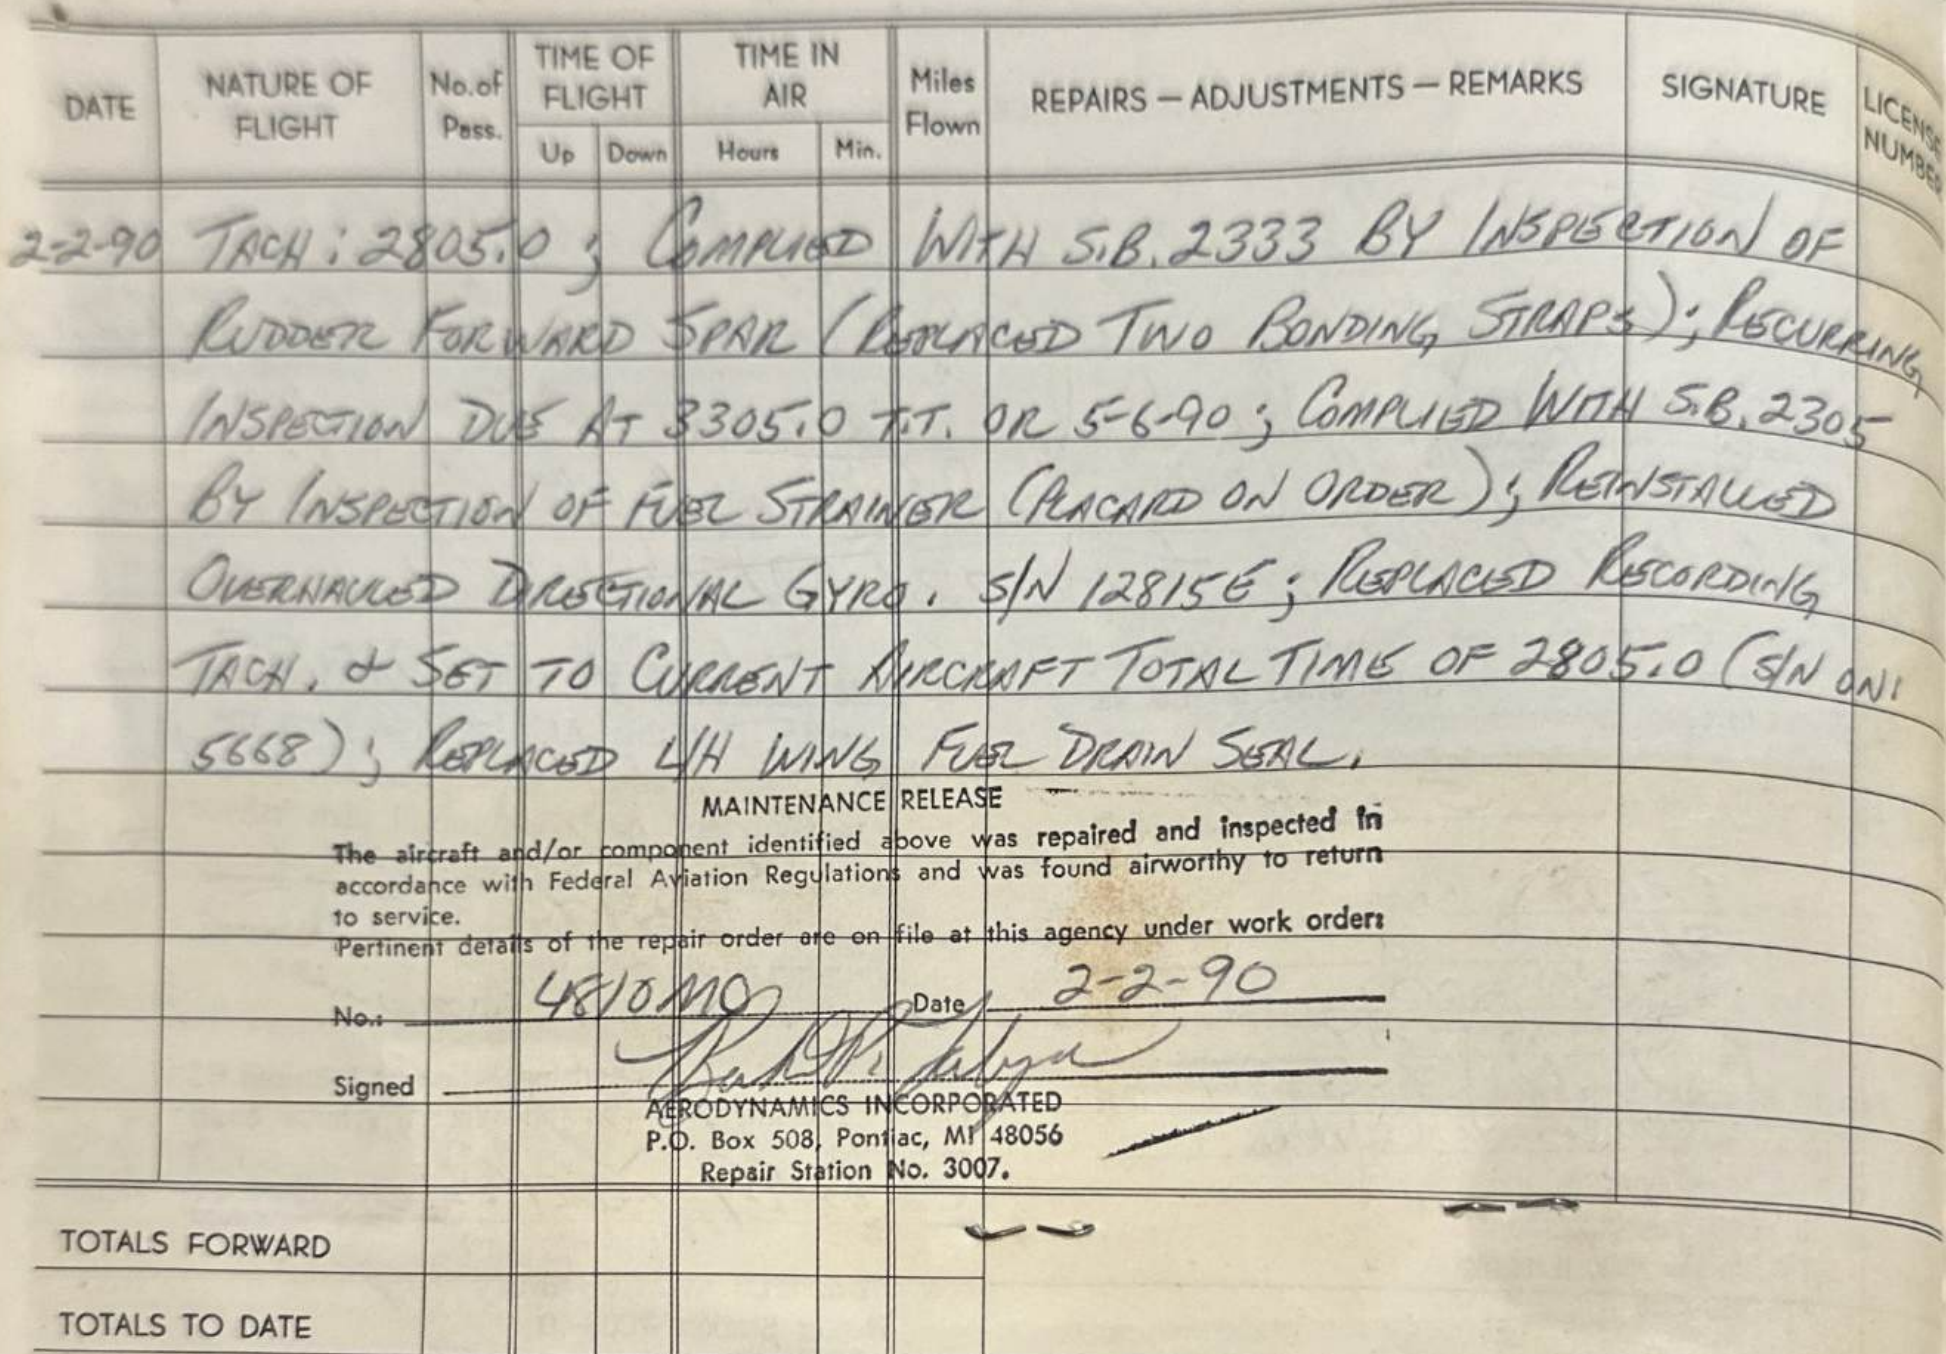 DATE NATURE OF FLIGHT No. of Pass. TIME OF FLIGHT Up Down TIME IN AIR Hours Min. Miles Flown REPAIRS — ADJUSTMENTS — REMARKS SIGNATURE LICENSE NUMBER
2-2-90 TACH: 2805.0 ; COMPLIED WITH S.B. 2333 BY INSPECTION OF
RUDDER FORWARD SPAR (REPLACED TWO BONDING STRAPS); RECURRING
INSPECTION DUE AT 3305.0 T.T. OR 5-6-90 ; COMPLIED WITH S.B. 2305
BY INSPECTION OF FUEL STRAINER (PLACARD ON ORDER); REINSTALLED
OVERHAULED DIRECTIONAL GYRO. S/N 12815E ; REPLACED RECORDING
TACH. & SET TO CURRENT AIRCRAFT TOTAL TIME OF 2805.0 (S/N
5668) ; REPLACED L/H WING FUEL DRAIN SEAL.
MAINTENANCE RELEASE
The aircraft and/or component identified above was repaired and inspected in
accordance with Federal Aviation Regulations and was found airworthy to return
to service.
Pertinent details of the repair order are on file at this agency under work order:
No.: 4810MO Date 2-2-90
Signed
AERODYNAMICS INCORPORATED
P.O. Box 508, Pontiac, MI 48056
Repair Station No. 3007.
TOTALS FORWARD
TOTALS TO DATE